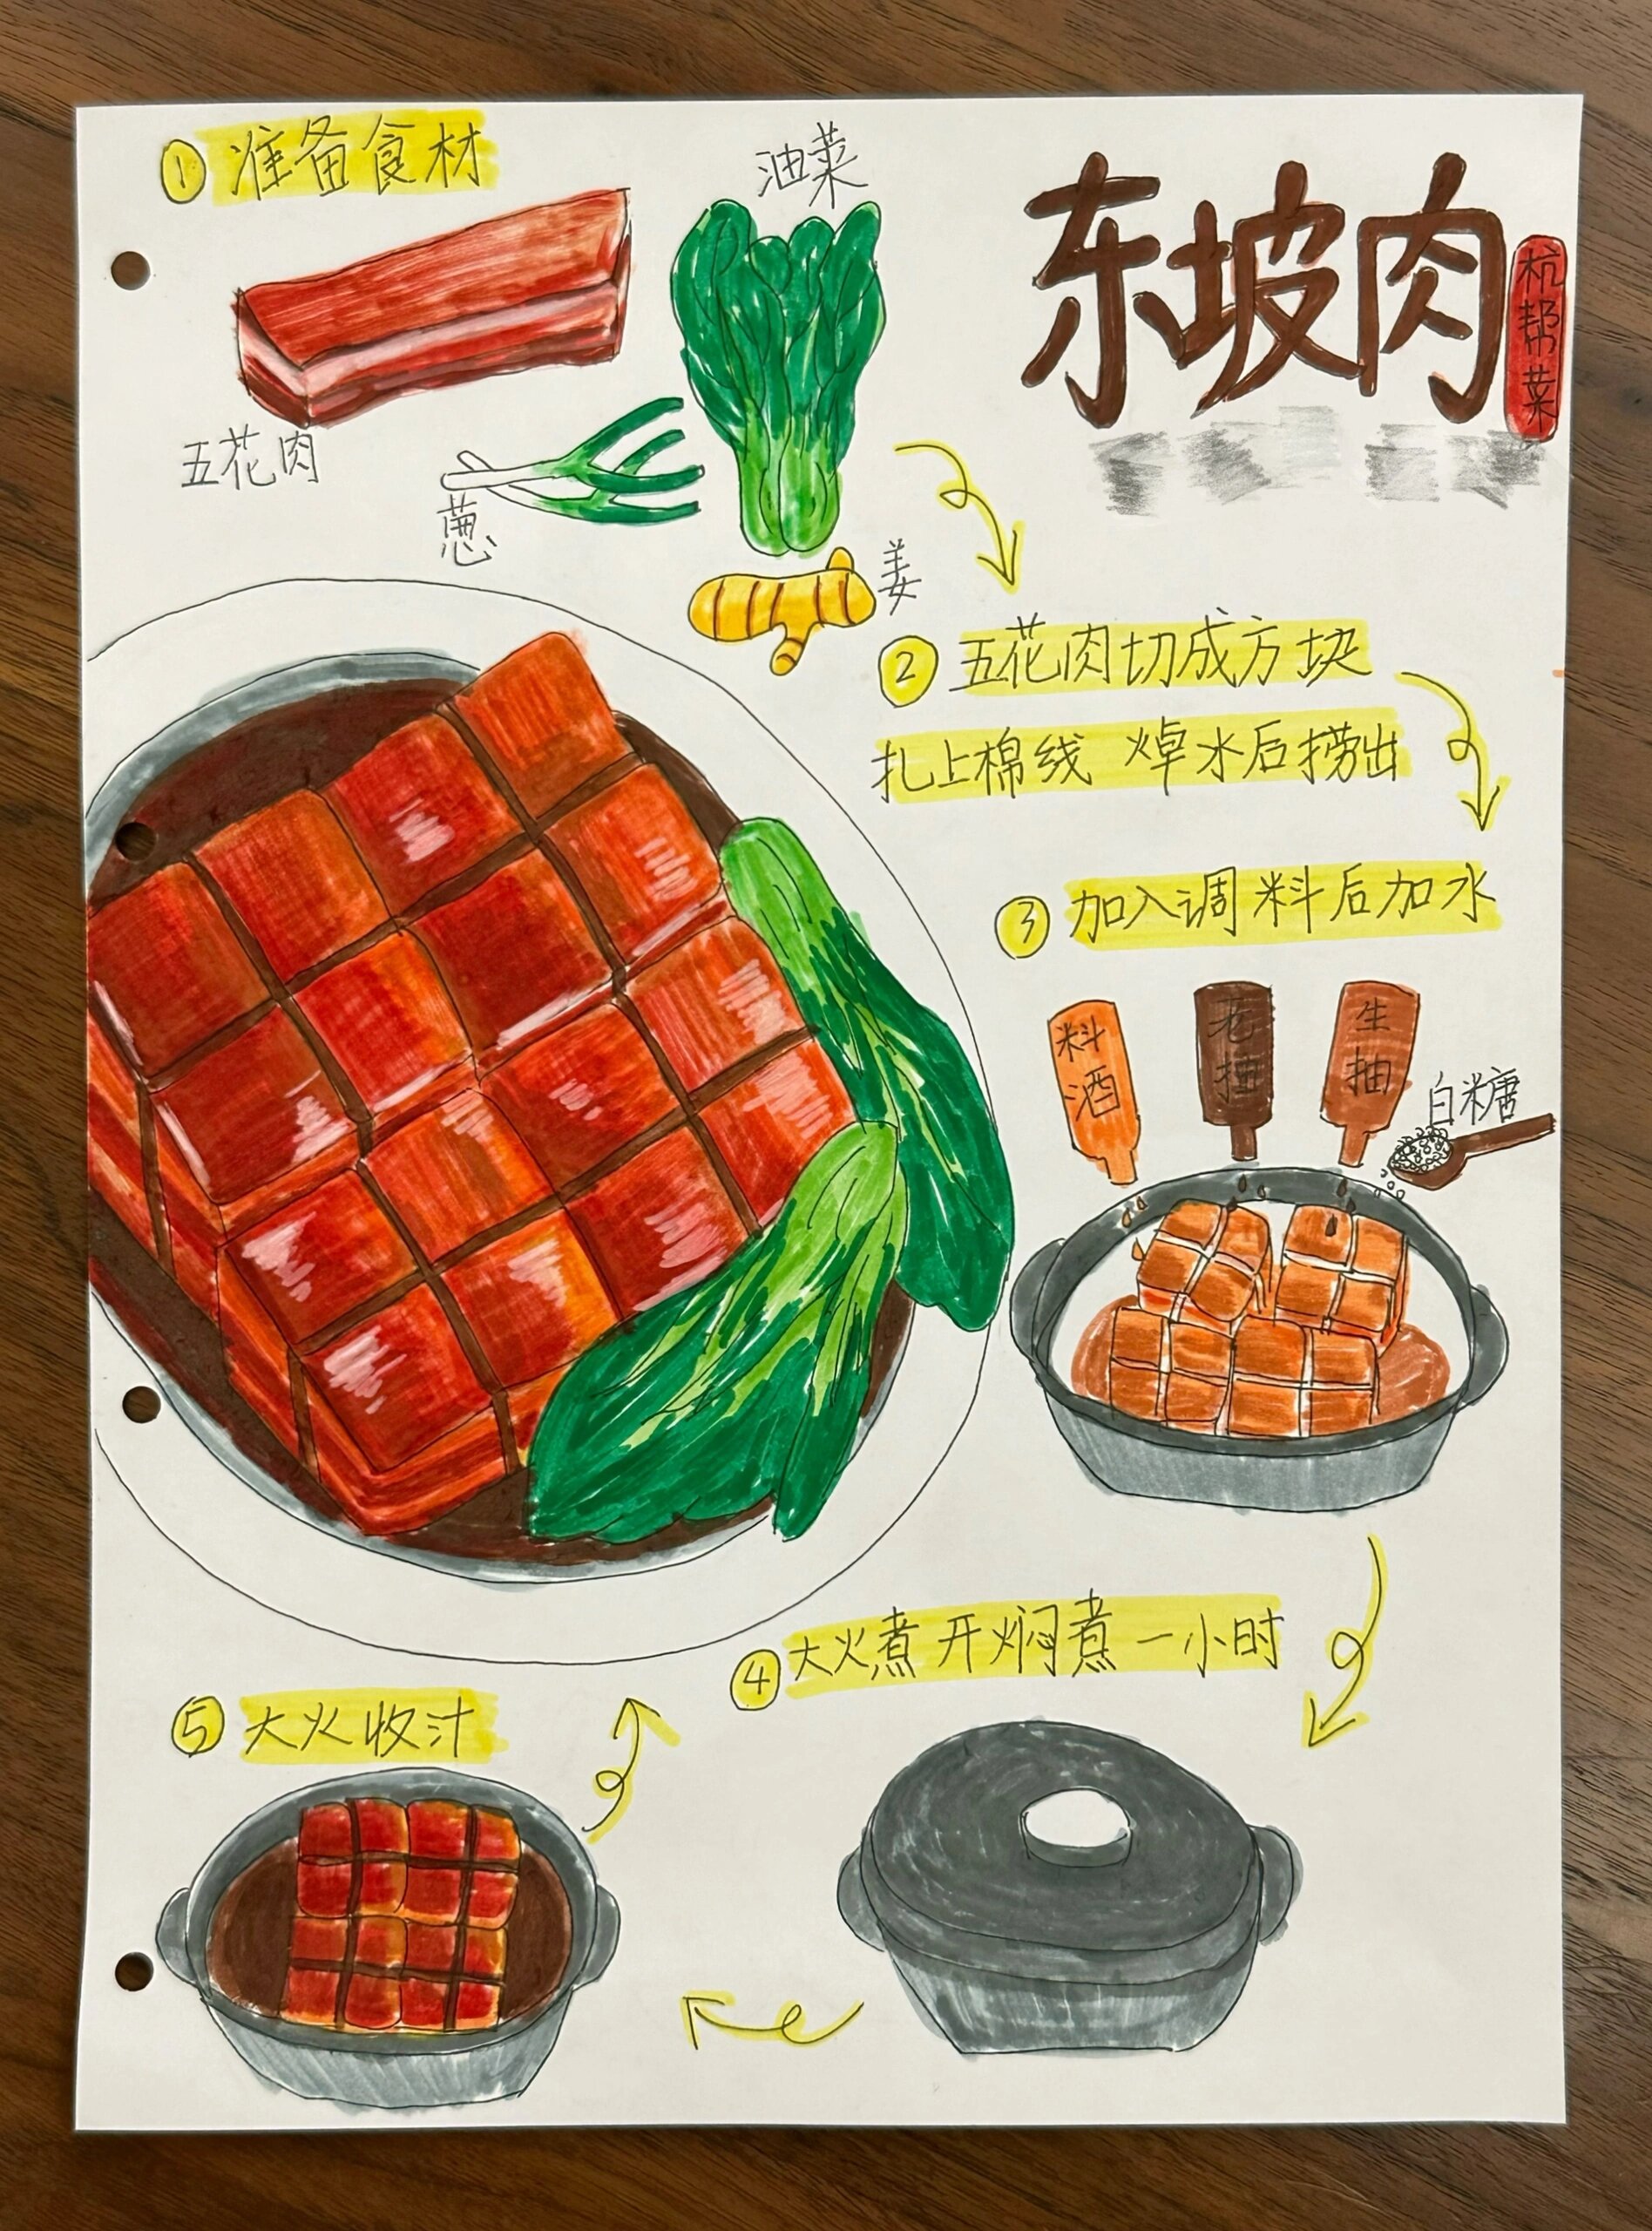 东坡肉
杭帮菜
① 准备食材
五花肉
葱
油菜
姜
② 五花肉切成方块
扎上棉线 焯水后捞出
③ 加入调料后加水
料酒
老抽
生抽
白糖
④ 大火煮开焖煮一小时
⑤ 大火收汁